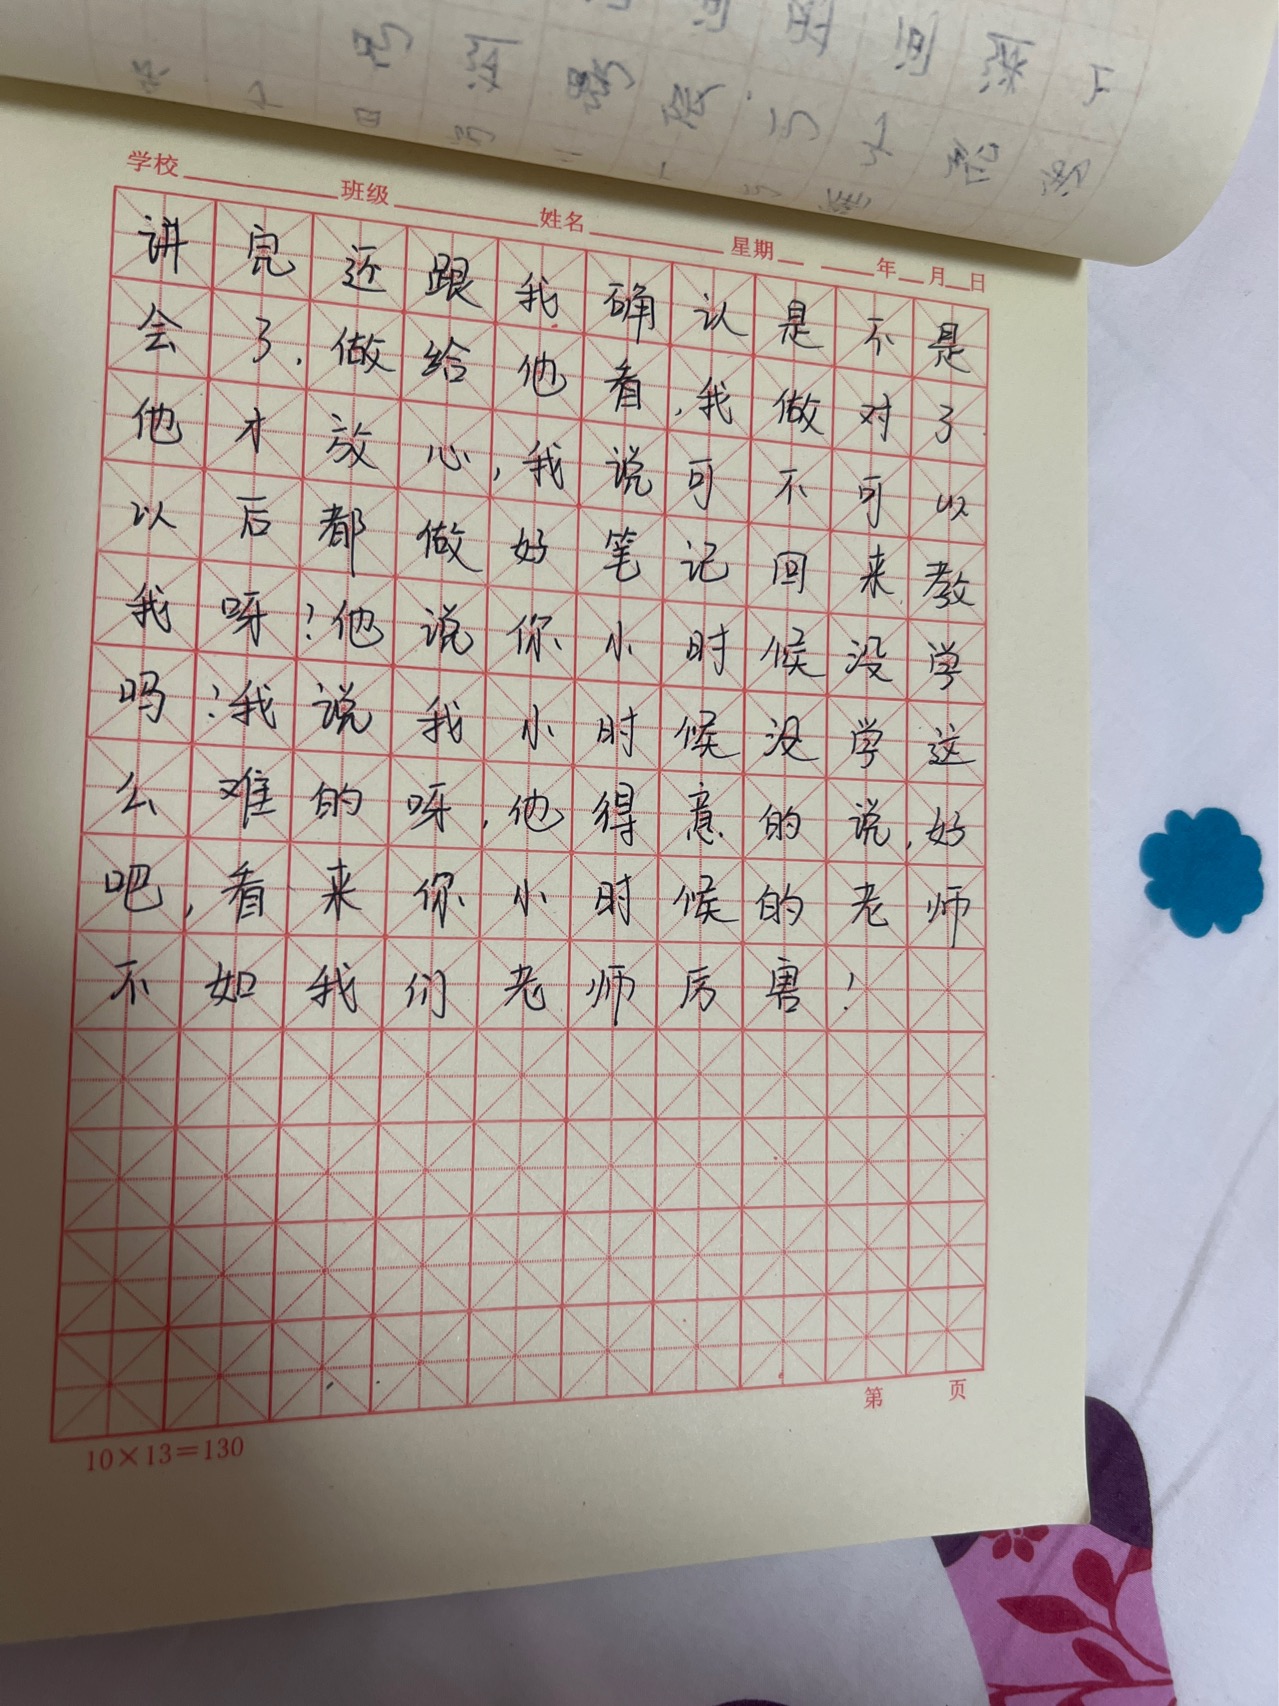 学校 班级 姓名 星期 年 月 日
讲完还跟我确认是不是
会了，做给他看，我做对了
他才放心，我说可不可以
以后都做好笔记回来教
我呀？他说你小时候没学
吗？我说我小时候没学这
么难的呀，他得意的说，好
吧，看来你小时候的老师
不如我们老师厉害！
第 页
10×13＝130